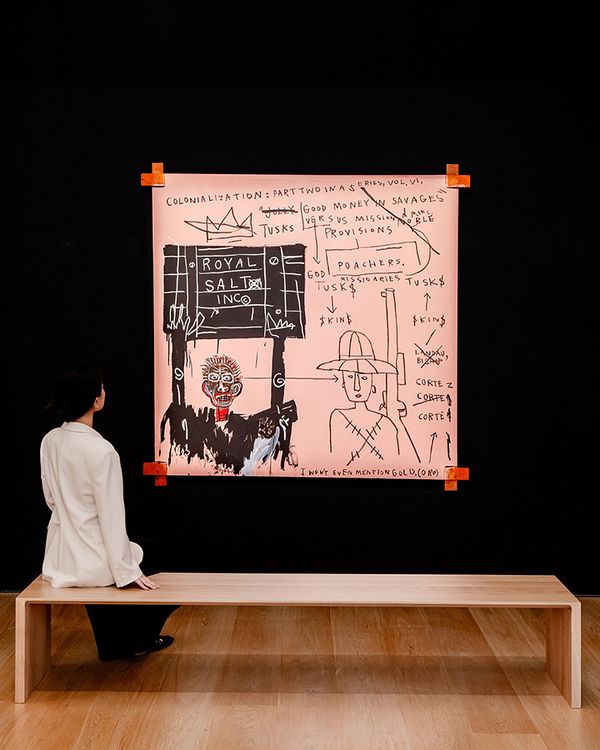 COLONIALIZATION: PART TWO IN A SERIES, VOL. VI.
"JOLEY GOOD MONEY IN SAVAGES"
TUSKS VERSUS MISSION NOBLE
PROVISIONS
ROYAL
SALT
INC©
POACHERS.
MISSIONARIES
GOD
TUSK$
TUSK$
$KIN$
$KIN$
LANDAU,
BISHOP
CORTEZ
CORTE
CORTE
I WON'T EVEN MENTION GOLD, (ORO)